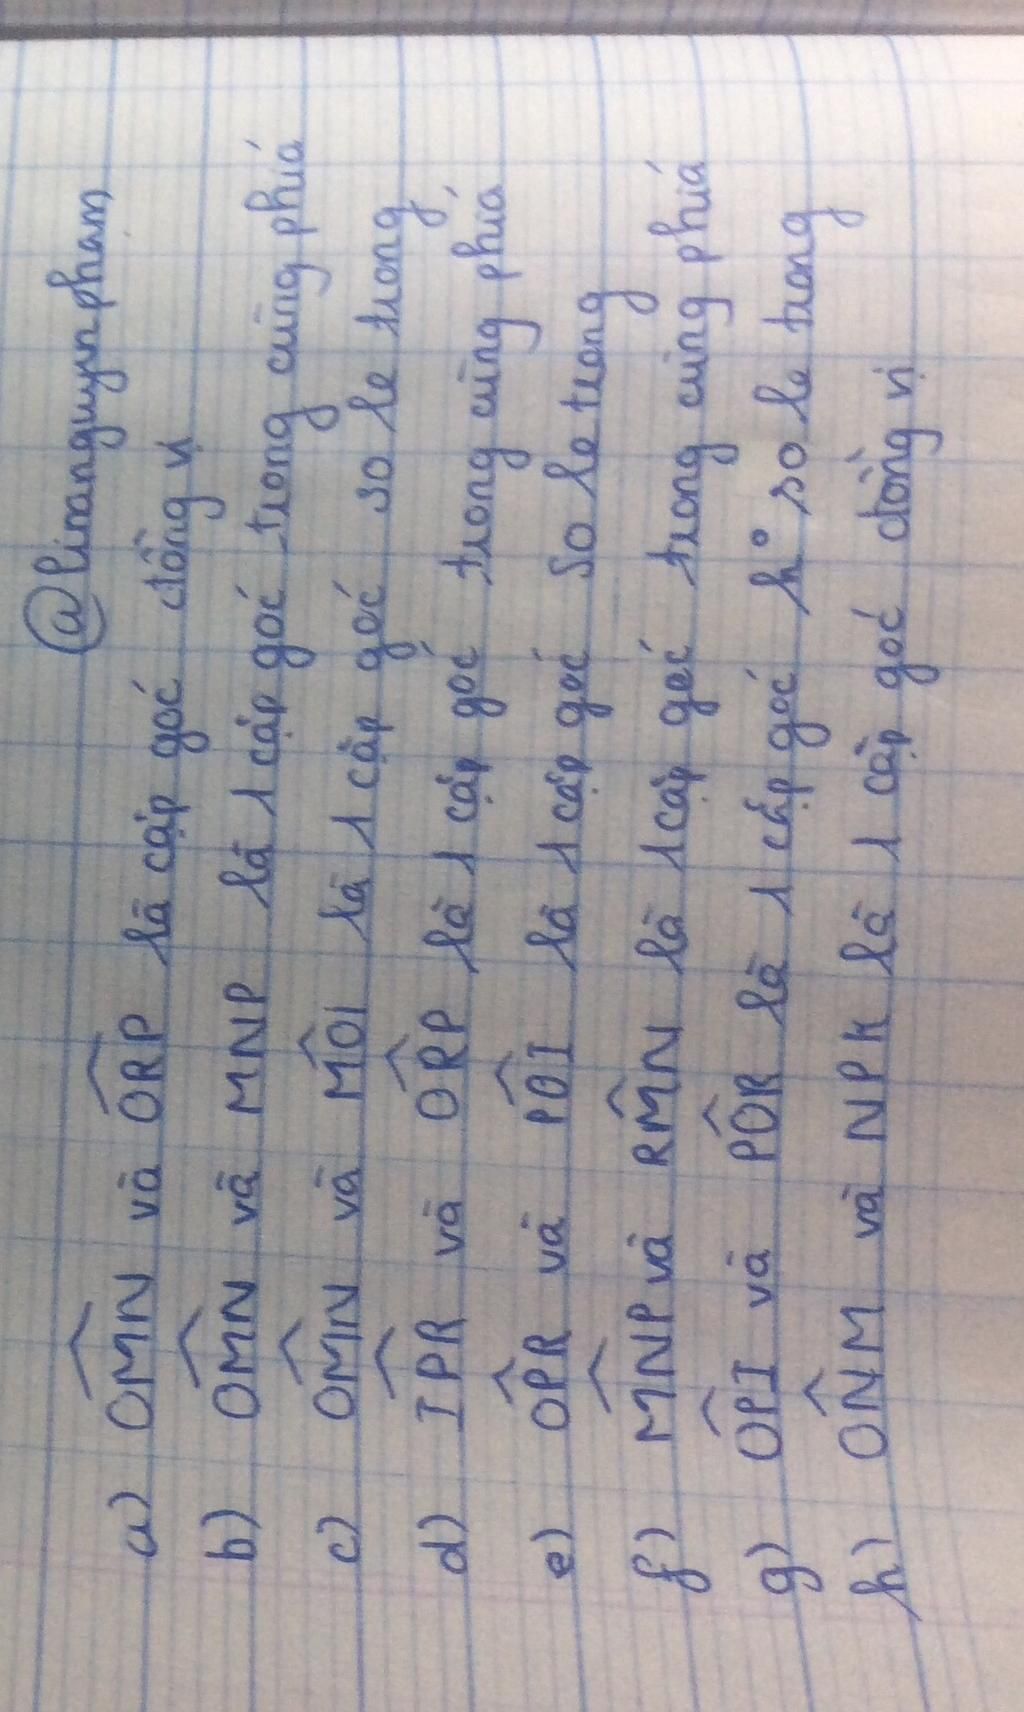 @linanguynpham
a) ÔMN và ÔRP là cặp góc đồng vị
b) ÔMN và MNP là 1 cặp góc trong cùng phía
c) ÔMN và MÔI là 1 cặp góc so le trong
d) IPR và ÔRP là 1 cặp góc trong cùng phía
e) ÔPR và PÔI là 1 cặp góc so le trong
f) MNP và RMN là 1 cặp góc trong cùng phía
g) ÔPI và PÔR là 1 cặp góc so le trong
h) ÔNM và NPK là 1 cặp góc đồng vị